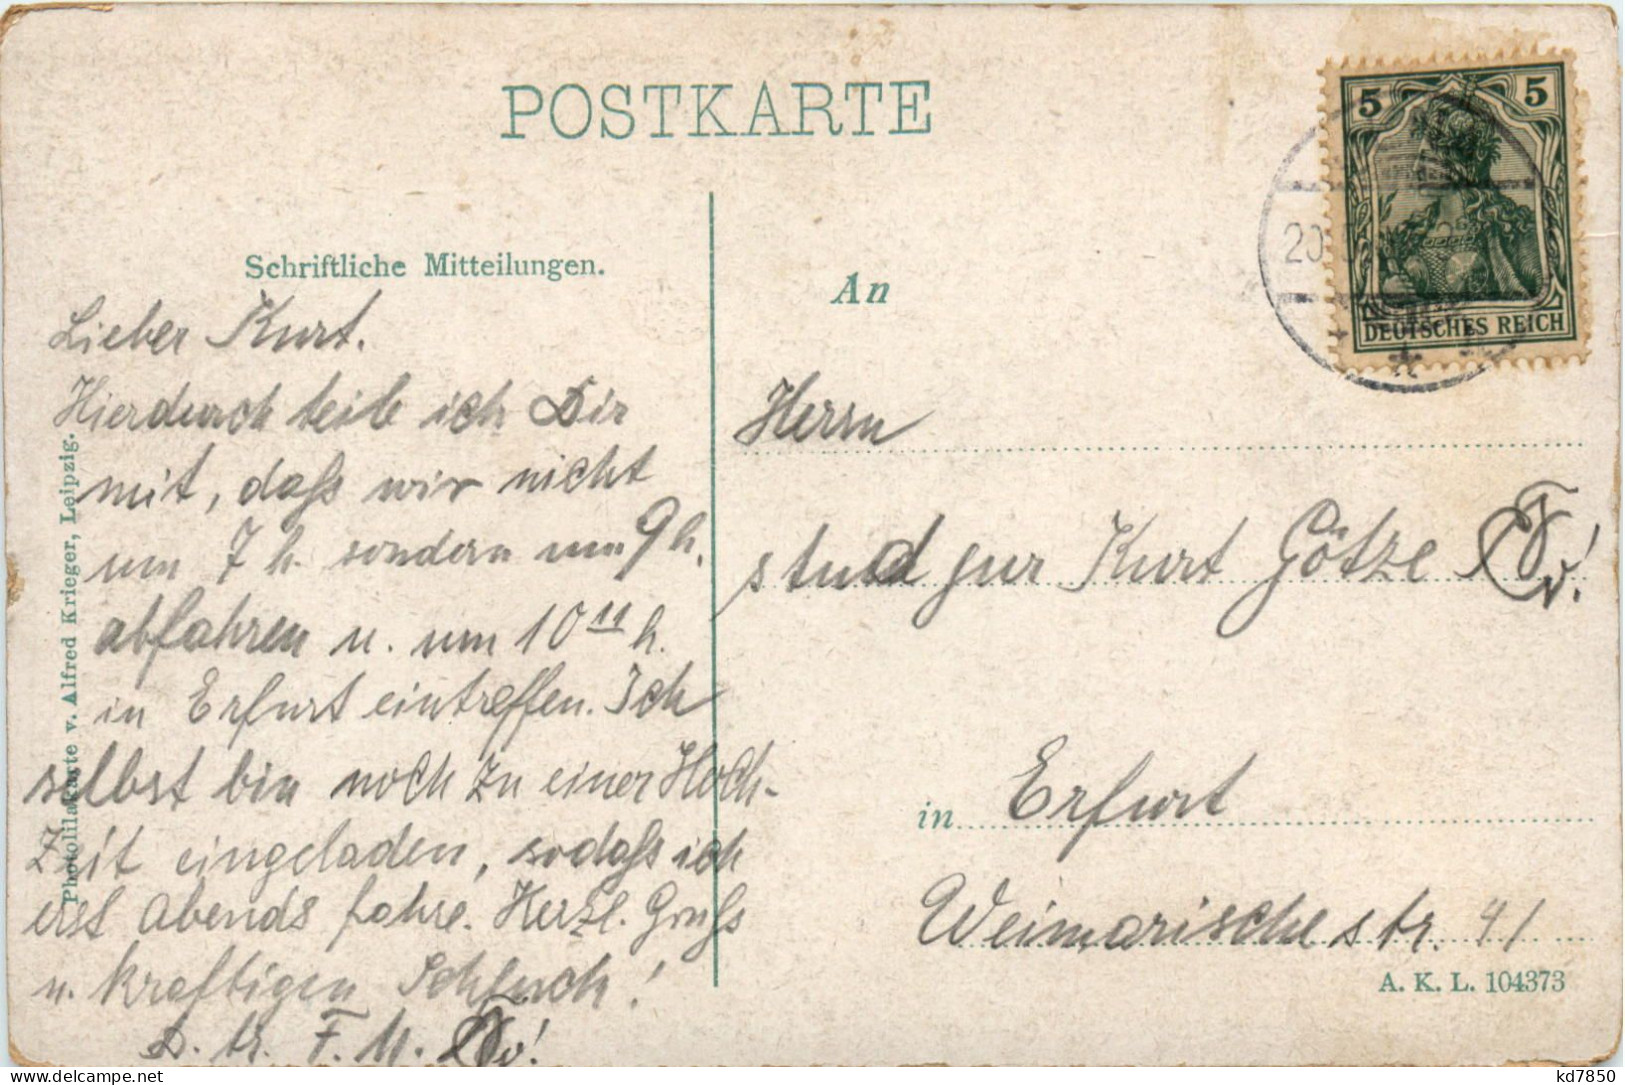 POSTKARTE
Schriftliche Mitteilungen.
Lieber Kurt.
Hierdurch teile ich Dir
mit, daß wir nicht
um 7 h. sondern um 9 h.
abfahren u. um 10 11 h.
in Erfurt eintreffen. Ich
selbst bin noch zu einer Hoch-
zeit eingeladen, sodaß ich
erst Abends fahre. Herzl. Gruß
u. kräftigen Schluck!
D. tr. F. M.
Photolilakarte v. Alfred Krieger, Leipzig.
5 5
DEUTSCHES REICH
20
An
Herrn
stud jur Kurt Götze
in Erfurt
Weimarische str. 41
A. K. L. 104373
kd7850